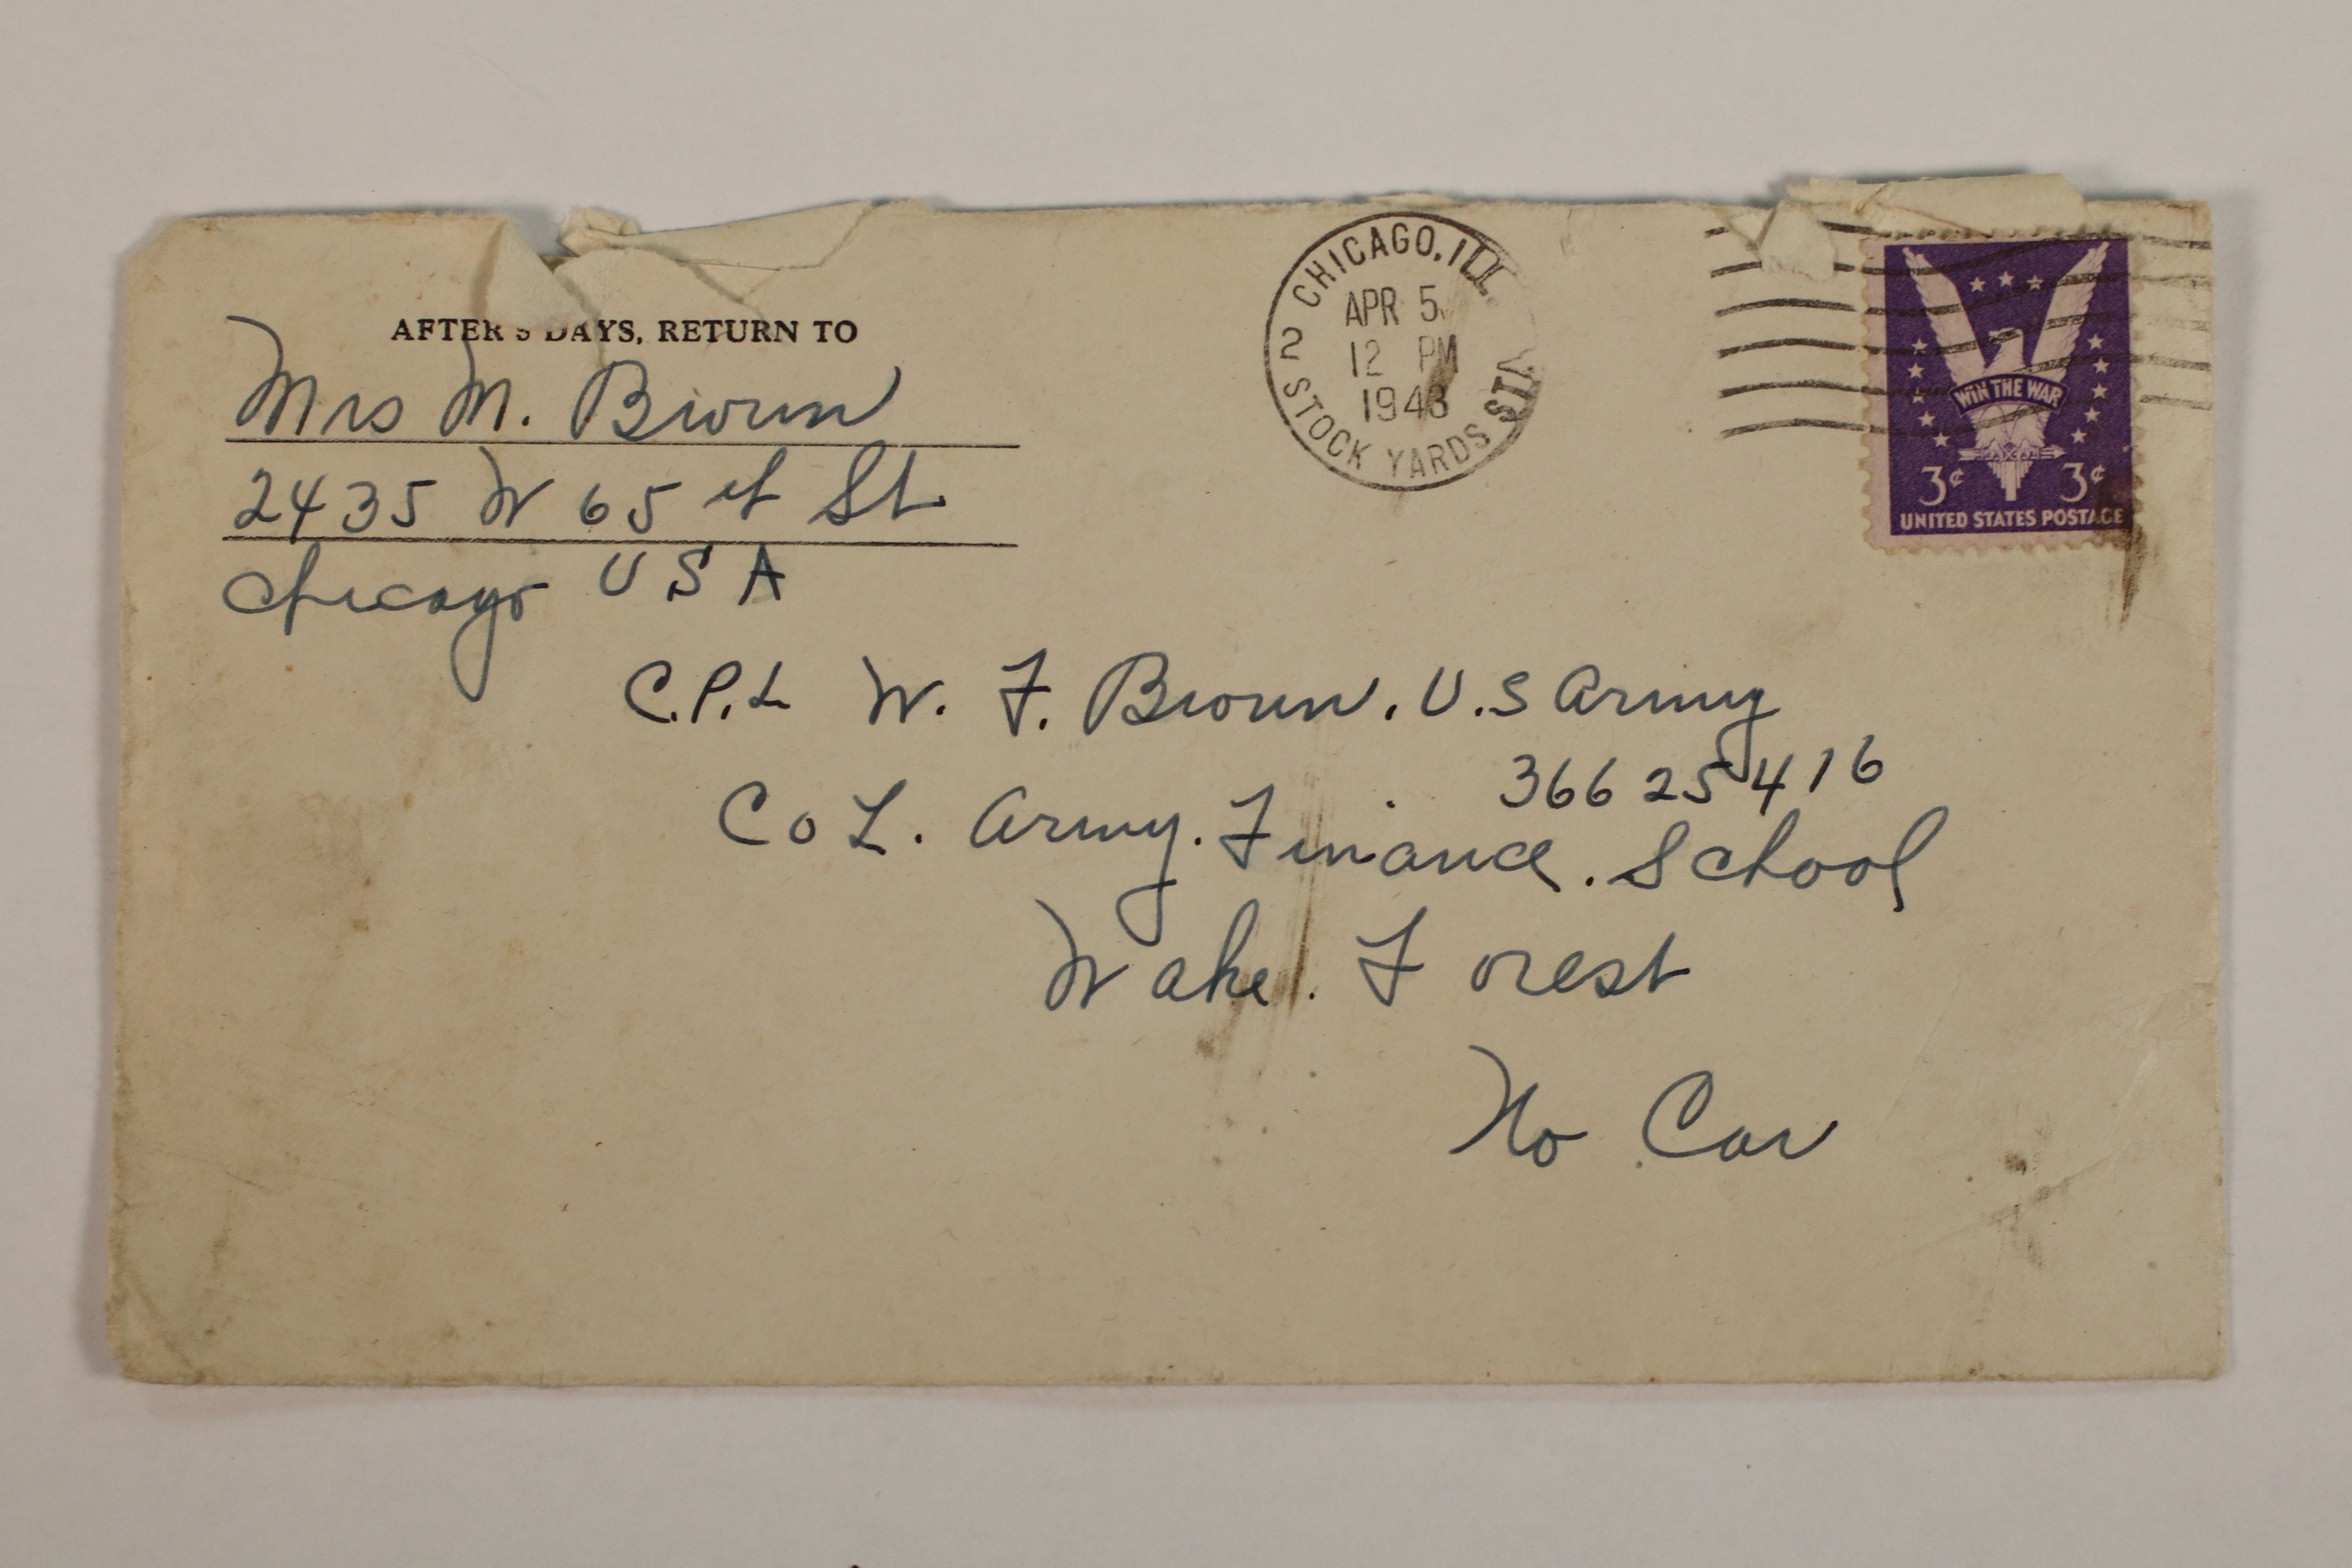 AFTER 5 DAYS, RETURN TO
Mrs M. Brown
2435 W 65 st St
Chicago USA
CHICAGO, ILL.
APR 5
12 PM
1943
2 STOCK YARDS STA.
WIN THE WAR
3¢ 3¢
UNITED STATES POSTAGE
C.P.L W. F. Brown. U.S Army
36625416
Co L. Army. Finance. School
Wake. Forest
No Car